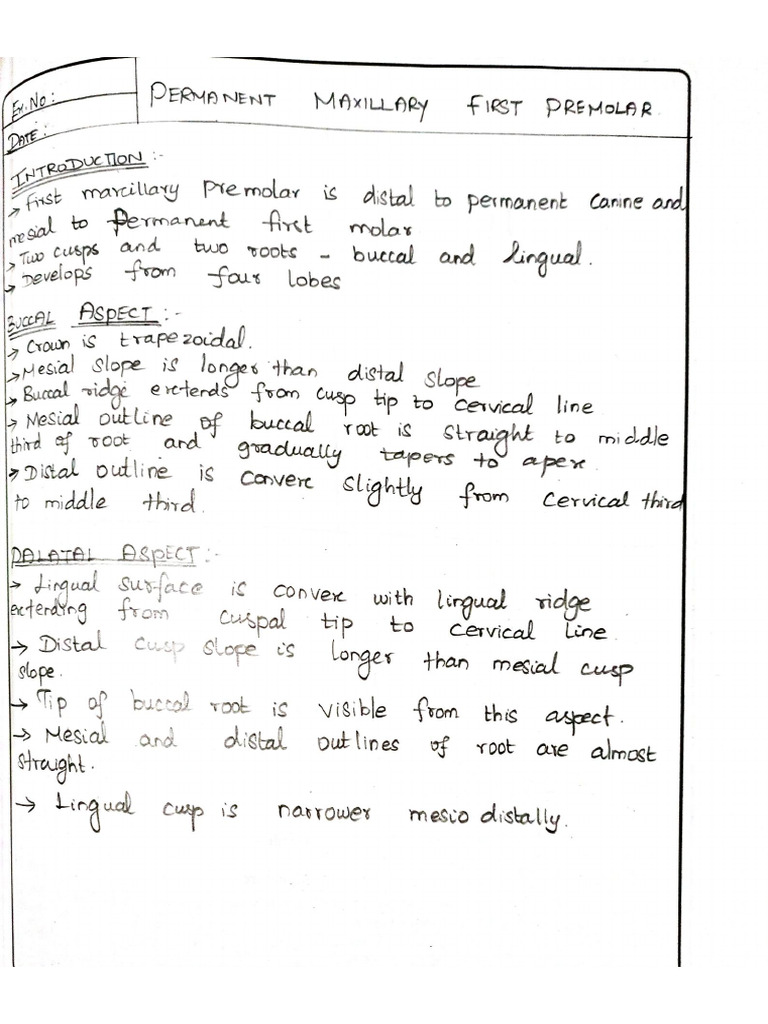 Ex. No:
PERMANENT MAXILLARY FIRST PREMOLAR.
DATE:
INTRODUCTION:-
→ First marcillary Premolar is distal to permanent canine and
mesial to Permanent first molar
→ Two cusps and two roots - buccal and lingual.
→ Develops from four lobes
BUCCAL ASPECT:-
→ Crown is trapezoidal.
→ Mesial slope is longer than distal slope
→ Buccal ridge extends from cusp tip to cervical line
→ Mesial outline of buccal root is straight to middle
third of root and gradually tapers to apex.
→ Distal outline is convex slightly from cervical third
to middle third.
PALATAL ASPECT:-
→ Lingual surface is convex with lingual ridge
extending from cuspal tip to cervical Line
→ Distal cusp slope is longer than mesial cusp
slope.
→ Tip of buccal root is visible from this aspect.
→ Mesial and distal outlines of root are almost
straight.
→ Lingual cusp is narrower mesio distally.